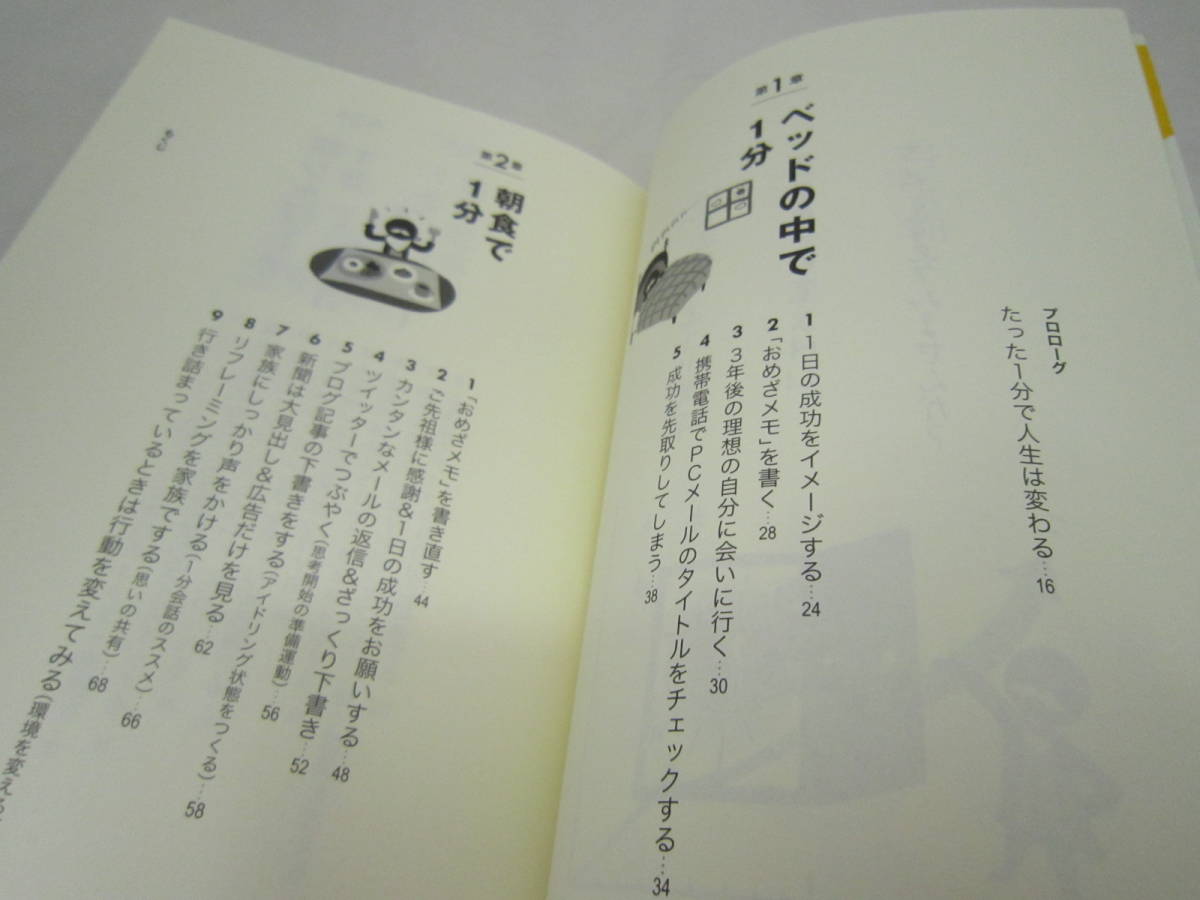 プロローグ
たった1分で人生は変わる…16
第1章
ベッドの中で
1分
1 1日の成功をイメージする…24
2 「おめざメモ」を書く…28
3 3年後の理想の自分に会いに行く…30
4 携帯電話でPCメールのタイトルをチェックする…34
5 成功を先取りしてしまう…38
第2章
朝食で
1分
1 「おめざメモ」を書き直す…44
2 ご先祖様に感謝&1日の成功をお願いする…48
3 カンタンなメールの返信&ざっくり下書き…52
4 ツイッターでつぶやく(思考開始の準備運動)…56
5 ブログ記事の下書きをする(アイドリング状態をつくる)…58
6 新聞は大見出し&広告だけを見る…62
7 家族にしっかり声をかける(1分会話のススメ)…66
8 リフレーミングを家族でする(思いの共有)…68
9 行き詰まっているときは行動を変えてみる(環境を変える
もくじ